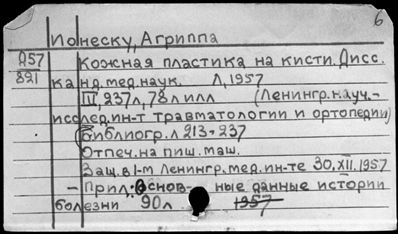 6
Ионеску, Агриппа
Д57
821
Кожная пластика на кисти. Дисс.
канд. мед. наук. Л, 1957
III, 237л, 78л илл (Ленингр. науч.-
исслед. ин-т травматологии и ортопедии)
(Библиогр. л 213-237
Отпеч. на пиш. маш.
Защ. в 1-м Ленингр. мед. ин-те 30.XII.1957
- Прил: Основные данные истории
болезни 90л 1957